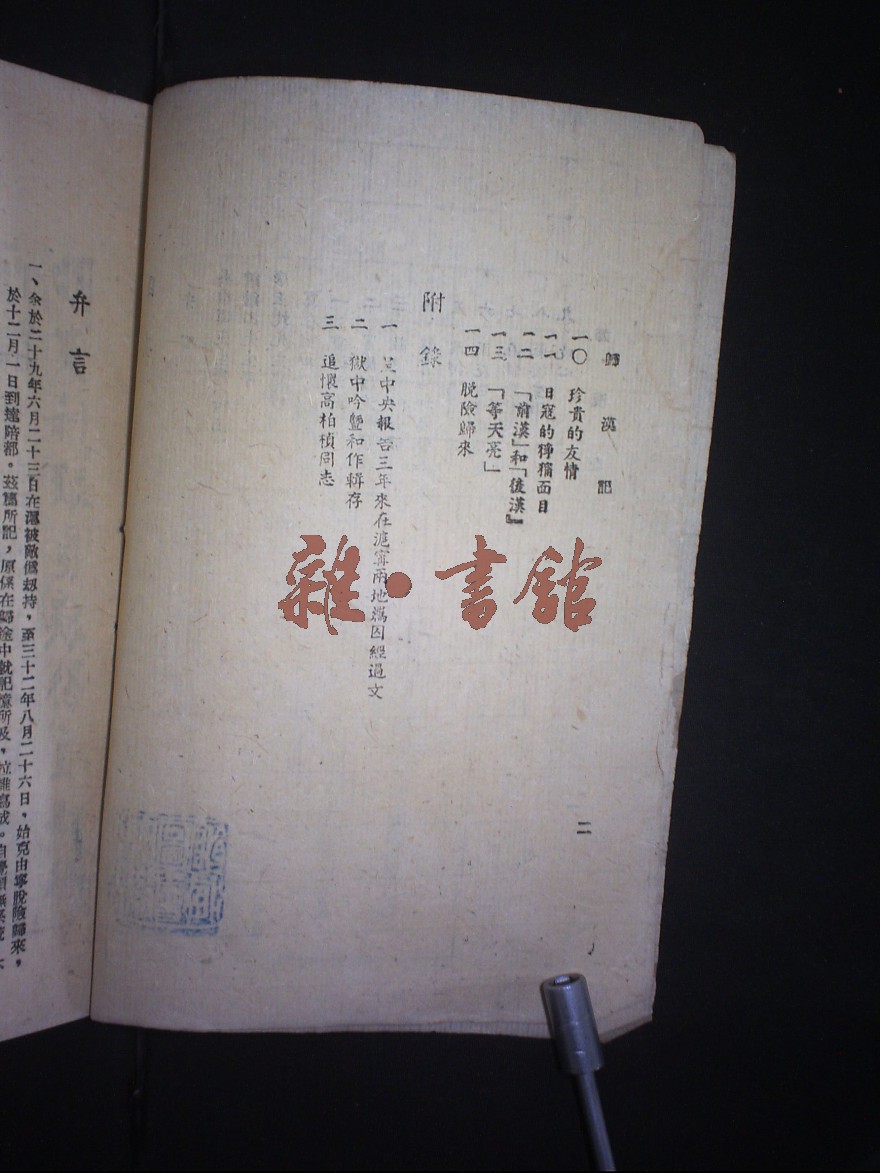 歸漢記
一〇　珍貴的友情
一一　日寇的猙獰面目
一二　「前漢」和「後漢」
一三　「等天亮」
一四　脫險歸來
附錄
一　中央報告三年來在滬寧兩地為囚經過文
二　獄中吟曁和作輯存
三　追懷高柏楨同志
二
弁言
一、余於二十九年六月二十三日在滬被敵僞刼持，至三十二年八月二十六日，始克由寧脫險歸來，
於十二月一日到達陪都。茲篇所記，原係在歸途中就記憶所及，拉雜寫成。自
雜·書館